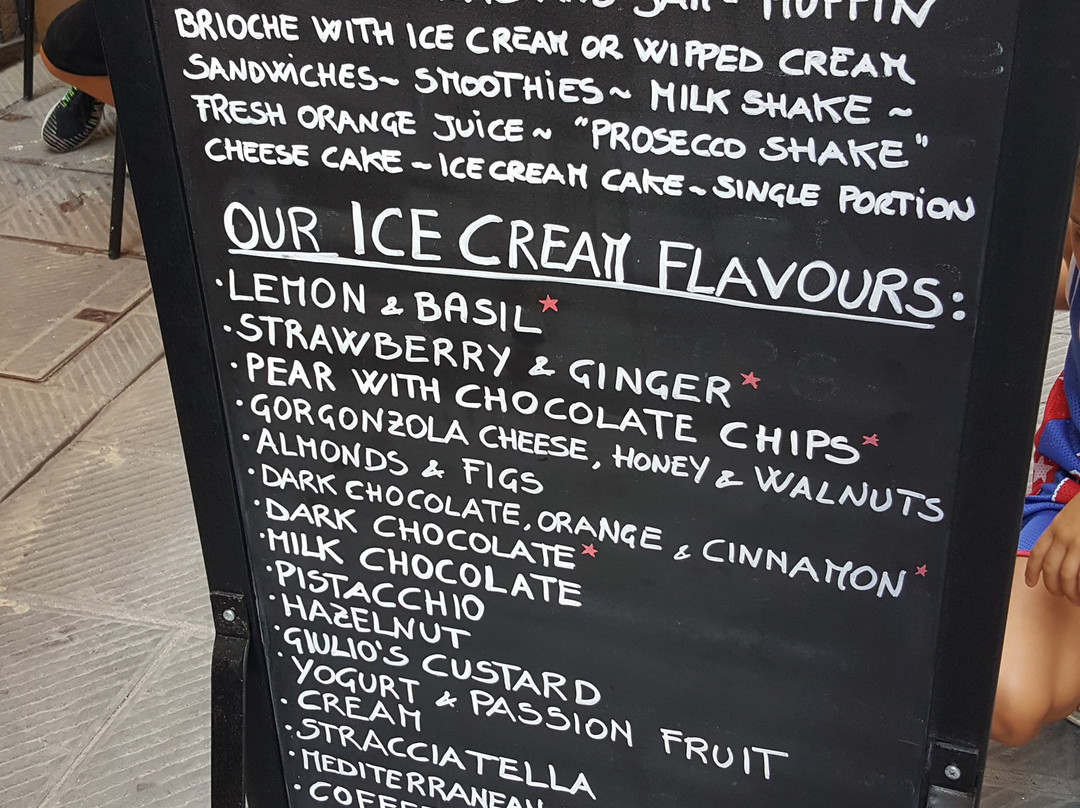 JAM ~ MUFFIN
BRIOCHE WITH ICE CREAM OR WIPPED CREAM
SANDWICHES~ SMOOTHIES~ MILK SHAKE ~
FRESH ORANGE JUICE ~ "PROSECCO SHAKE"
CHEESE CAKE ~ ICE CREAM CAKE ~ SINGLE PORTION
OUR ICE CREAM FLAVOURS:
·LEMON & BASIL★
·STRAWBERRY & GINGER★
·PEAR WITH CHOCOLATE CHIPS★
·GORGONZOLA CHEESE, HONEY & WALNUTS
·ALMONDS & FIGS
·DARK CHOCOLATE, ORANGE & CINNAMON★
·DARK CHOCOLATE★
·MILK CHOCOLATE
·PISTACCHIO
·HAZELNUT
·GIULIO'S CUSTARD
·YOGURT & PASSION FRUIT
·CREAM
·STRACCIATELLA
·MEDITERRANEAN
·COFFEE